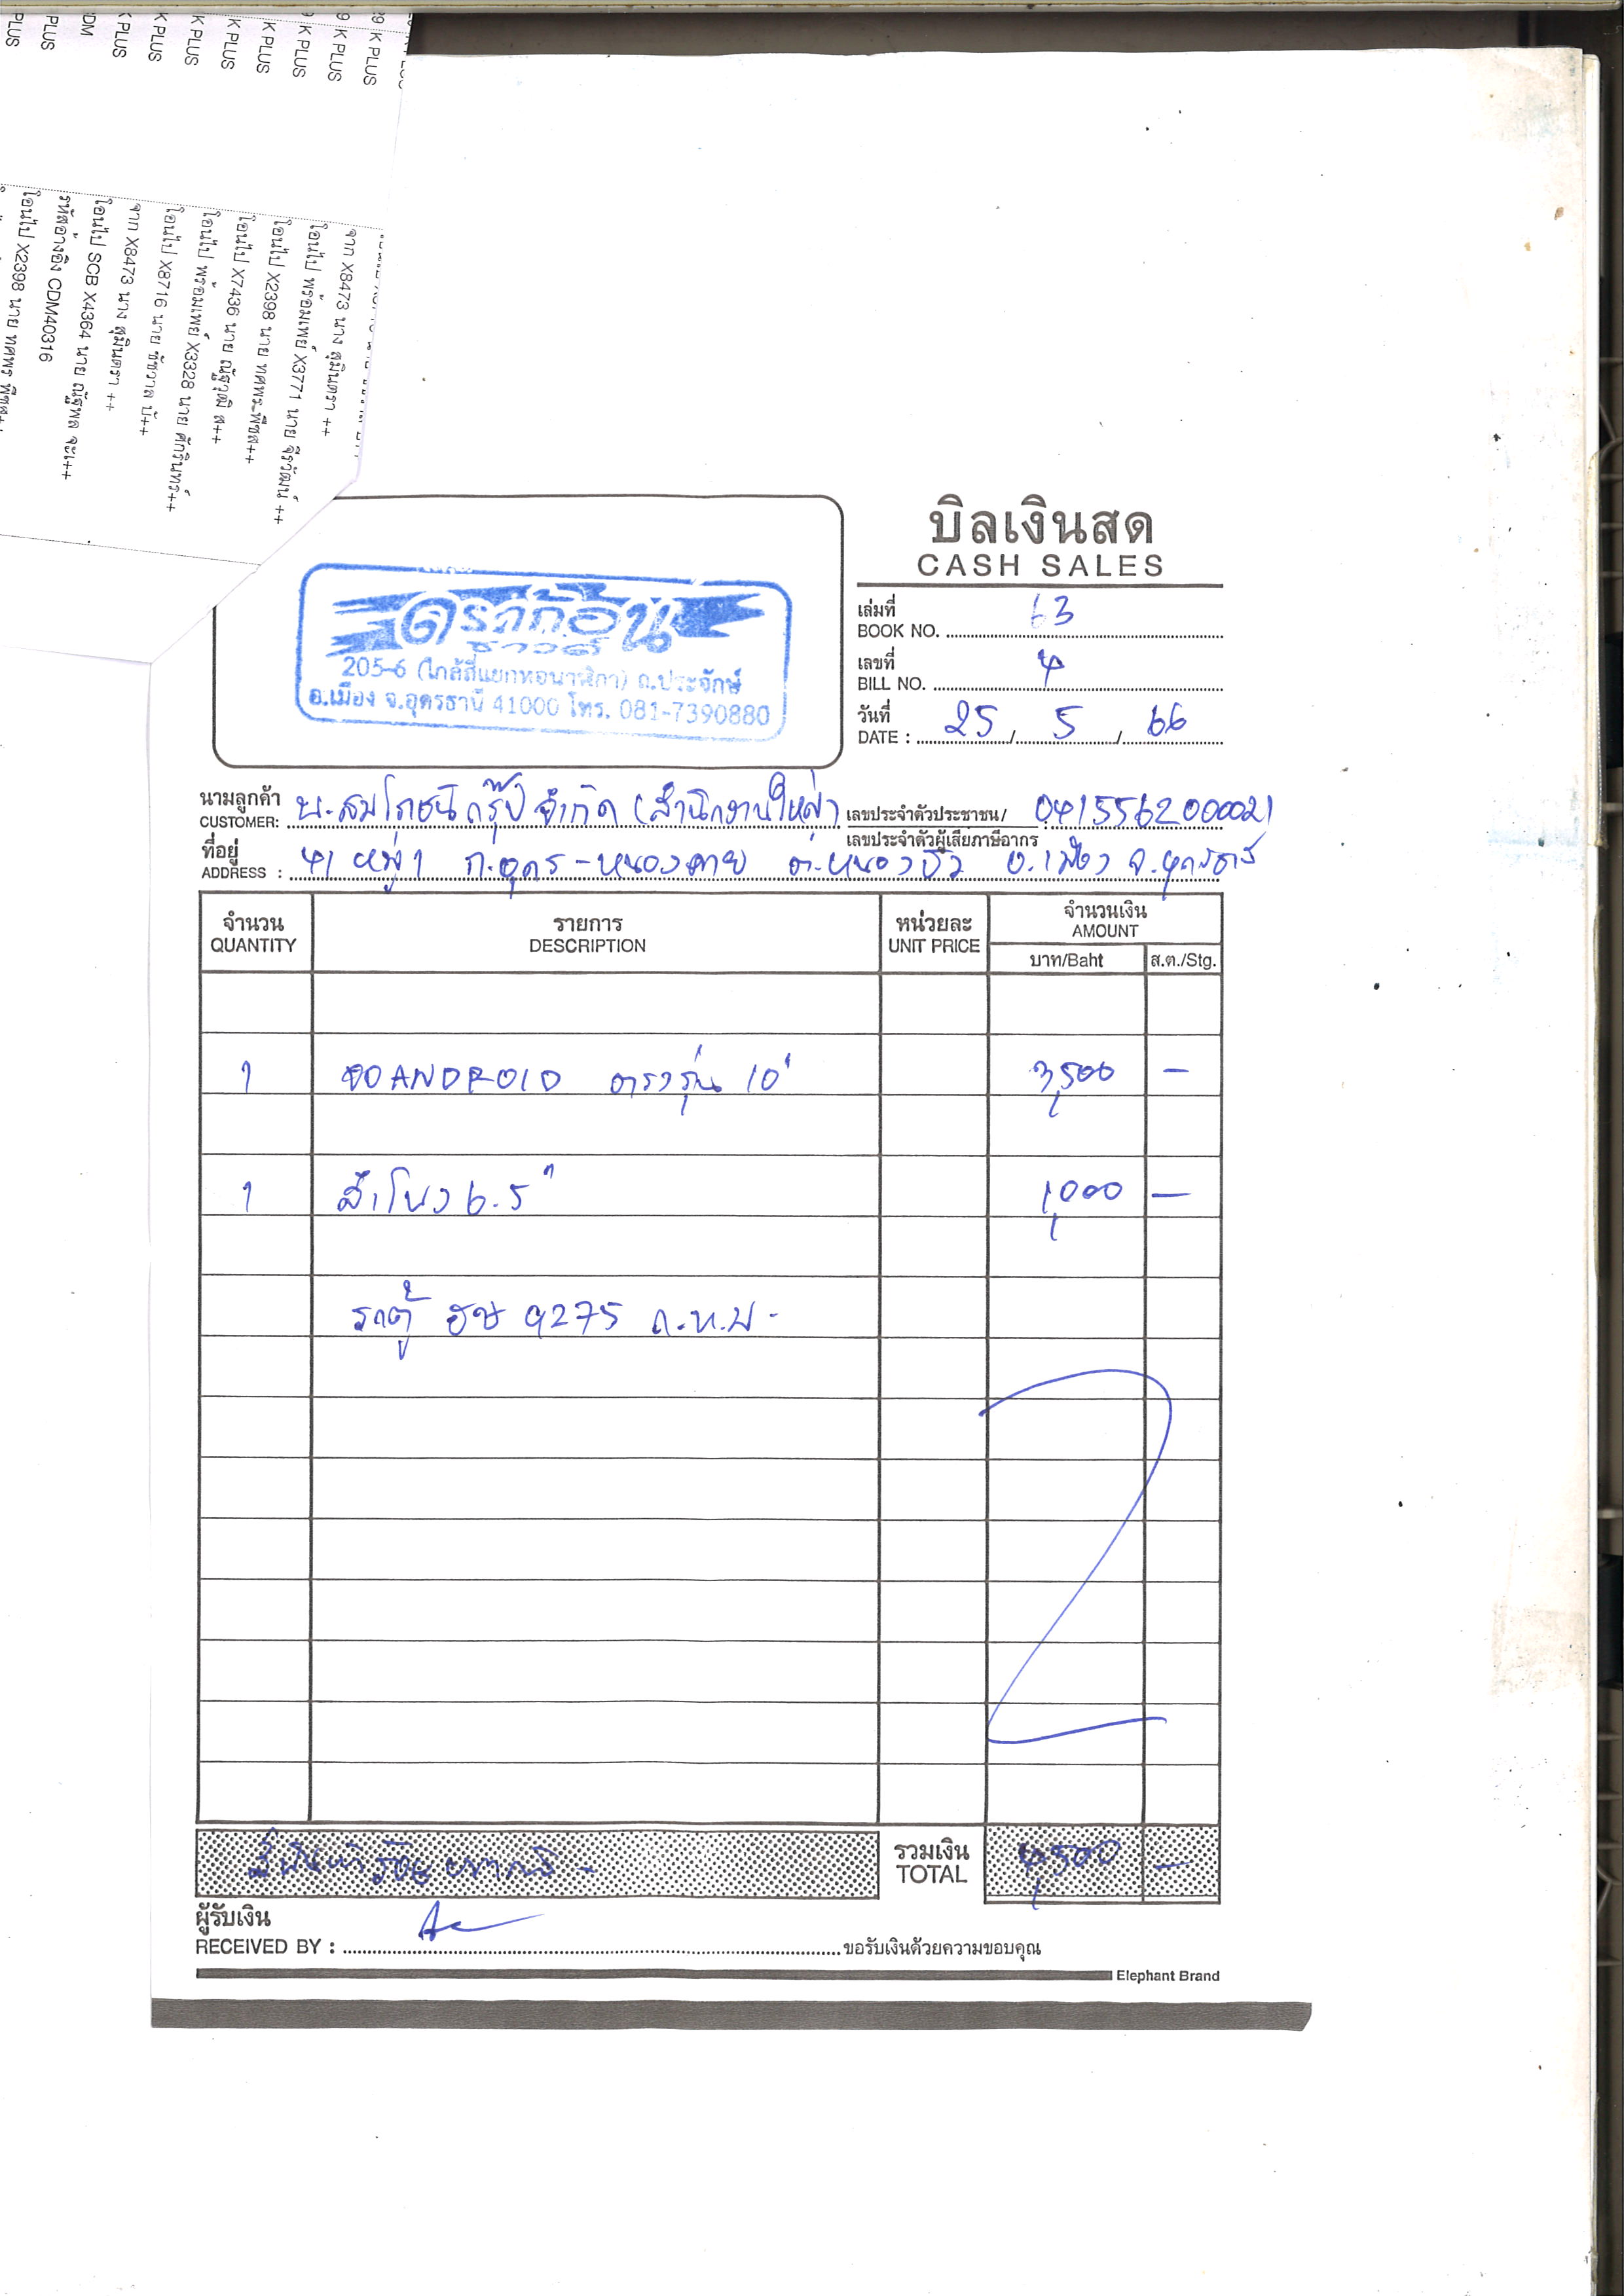 K PLUS
K PLUS
K PLUS
K PLUS
K PLUS
K PLUS
K PLUS
PLUS
PLUS
จาก X8473 นาง สุมินตรา ++
โอนไป พร้อมเพย์ X3771 นาย จิรวัฒน์ ++
โอนไป X2398 นาย ทศพร พืชส++
โอนไป X7436 นาย ณัฐวุฒิ ส++
โอนไป พร้อมเพย์ X3328 นาย ศักรินทร์++
โอนไป X8716 นาย ชัชวาล บั++
จาก X8473 นาง สุมินตรา ++
โอนไป SCB X4364 นาย ณัฐพล จะเ++
รหัสอ้างอิง CDM40316
โอนไป X2398 นาย ทศพร พืชส++
บิลเงินสด
CASH SALES
ดราก้อน
ซาวด์
205-6 (ใกล้สี่แยกหอนาฬิกา) ถ.ประจักษ์
อ.เมือง จ.อุดรธานี 41000 โทร. 081-7390880
เล่มที่
BOOK NO. 63
เลขที่
BILL NO. 4
วันที่
DATE : 25 / 5 / 66
นามลูกค้า
CUSTOMER: บ.สมโภชน์กรุ๊ป จำกัด (สำนักงานใหญ่) เลขประจำตัวประชาชน/ 0415562000021
เลขประจำตัวผู้เสียภาษีอากร
ที่อยู่
ADDRESS : 41 หมู่ 1 ถ.อุดร-หนองคาย ต.หนองบัว อ.เมือง จ.อุดรธานี
จำนวน รายการ หน่วยละ จำนวนเงิน
QUANTITY DESCRIPTION UNIT PRICE AMOUNT
บาท/Baht ส.ต./Stg.
1 จอANDROID ตรงรุ่น 10" 3,500 –
1 ลำโพง 6.5" 1,000 –
รถตู้ ฮษ 9275 ก.ท.ม.
สี่พันห้าร้อยบาทถ้วน - รวมเงิน 4,500 –
TOTAL
ผู้รับเงิน
RECEIVED BY : ขอรับเงินด้วยความขอบคุณ
Elephant Brand